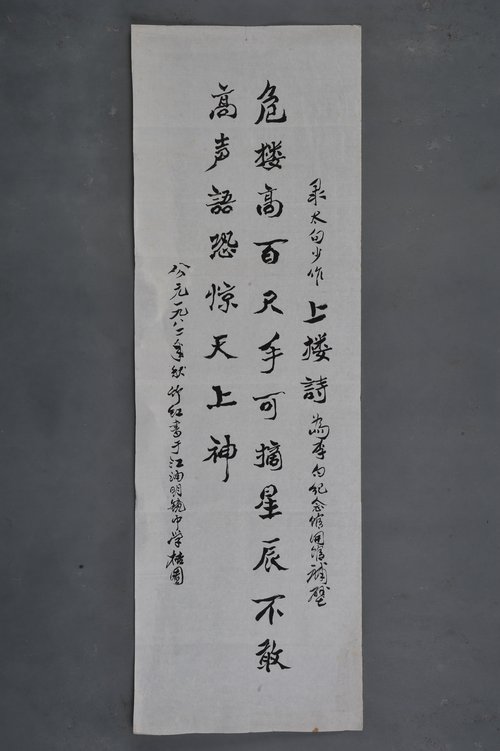 录太白少作 上楼詩 為李白纪念馆開馆補壁
危楼高百尺手可摘星辰不敢
高声語恐惊天上神
公元一九八二年秋竹红書于江油明镜中学桂園